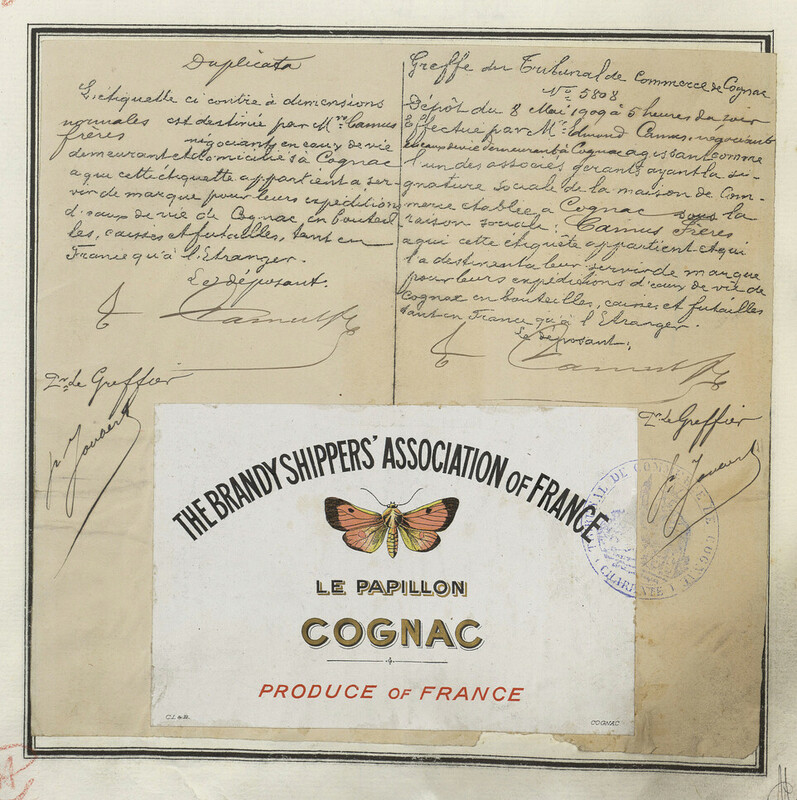 Duplicata
L'étiquette ci contre à dimensions
normales est destinée par Mrs. Camus
frères
négociants en eaux de vie
demeurant et domiciliés à Cognac
a qui cette étiquette appartient a ser-
vir de marque pour leurs expéditions
d'eaux de vie de Cognac, en bouteil
les, caisses et futailles, tant en
France qu'à l'Etranger.
Le déposant.
Camus
Pr. le Greffier
Jouaert
Greffe du Tribunal de Commerce de Cognac
No. 5808
Dépôt du 8 Mai 1909 à 5 heures du soir
Effectué par Mr. Edmond Camus, négociant
en eaux de vie demeurant à Cognac agissant comme
l'un des associés gérants, ayant la si-
gnature sociale de la maison de Com-
merce établie à Cognac sous la
raison sociale: Camus Frères
a qui cette étiquête appartient et qui
la destinent a leur servir de marque
pour leurs expéditions d'eaux de vie de
Cognac en bouteilles, caisses et futailles
tant en France qu'à l'Etranger.
Le déposant.
Camus
Pr. le Greffier
THE BRANDY SHIPPERS' ASSOCIATION OF FRANCE
LE PAPILLON
COGNAC
PRODUCE OF FRANCE
COGNAC
TRIBUNAL DE COMMERCE DE COGNAC
(CHARENTE)